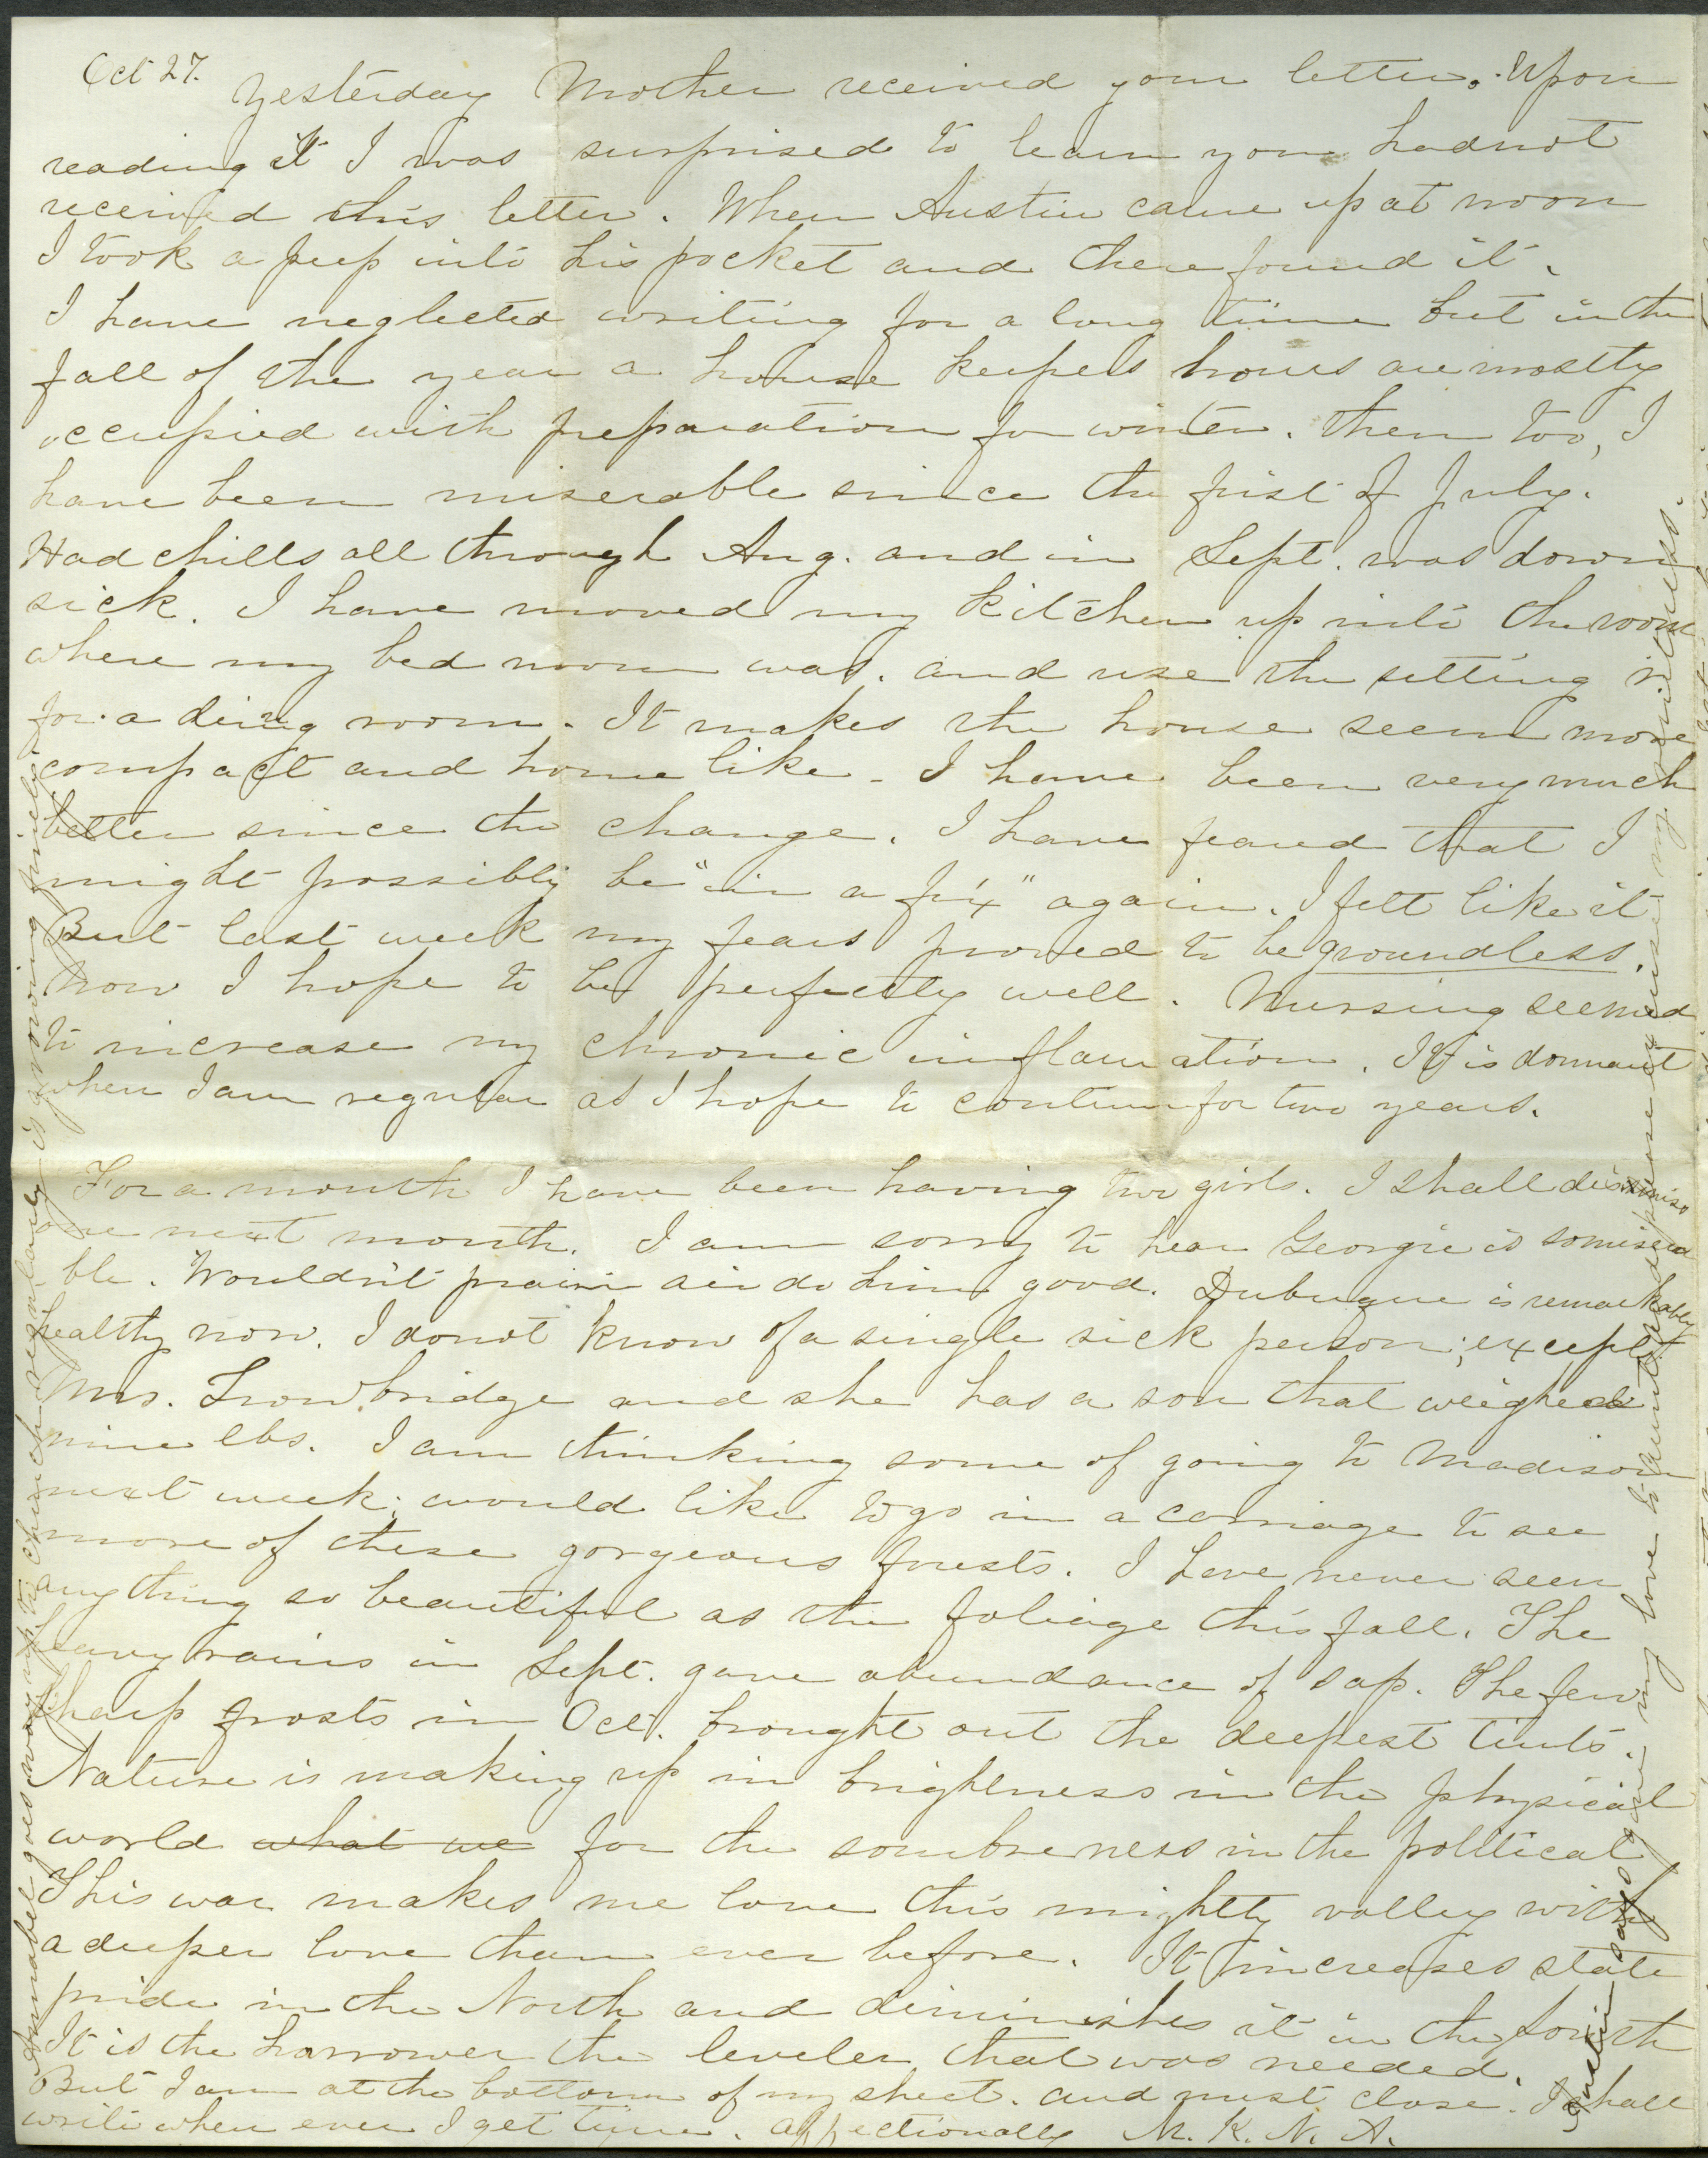 Oct 27. Yesterday Mother received your letter. Upon
reading it I was surprised to learn you had not
received this letter. When Austin came up at noon
I took a peep into his pocket and there found it.
I have neglected writing for a long time but in the
fall of the year a house keepers hours are mostly
occupied with preparation for winter. then too, I
have been miserable since the first of July.
Had chills all through Aug. and in Sept. was down
sick. I have moved my kitchen up into the room
where my bed room was. and use the setting r
for a diing room. It makes the house seem more
compact and home like - I have been very much
better since the change. I have feared that I
might possibly be "in a fix" again. I felt like it
But last week my fears proved to be groundless.
Now I hope to be perfectly well. Nursing seemed
to increase my chronic inflamation. It is dormant
when I am regular as I hope to continue for two years.
For a month I have been having two girls. I shall dismiss
one next month. I am sorry to hear Georgie is so misera
ble. Wouldn't prairie air do him good. Dubuque is remarkably
healthy now. I do not know of a single sick person; except
Mrs. Trowbridge and she has a son that weighed
nine lbs. I am thinking some of going to Madison
next week; would like to go in a carriage to see
more of these gorgeous forests. I have never seen
anything so beautiful as the foliage this fall. The
heavy rains in Sept. gave abundance of sap. The few
sharp frosts in Oct. brought out the deepest tints.
Nature is making up in brightness in the physical
world what we for the sombreness in the political
This war makes me love this mighty valley with
a deeper love than ever before. It increases state
pride in the North and diminishes it in the South
It is the harrower the leveler that was needed.
But I am at the bottom of my sheet. and must close. I shall
write when ever I get time. affectionally M. K. N. A.
Annabel goes way up to church regularly is growing finely
Austin says give my love to Aunt and please excuse my